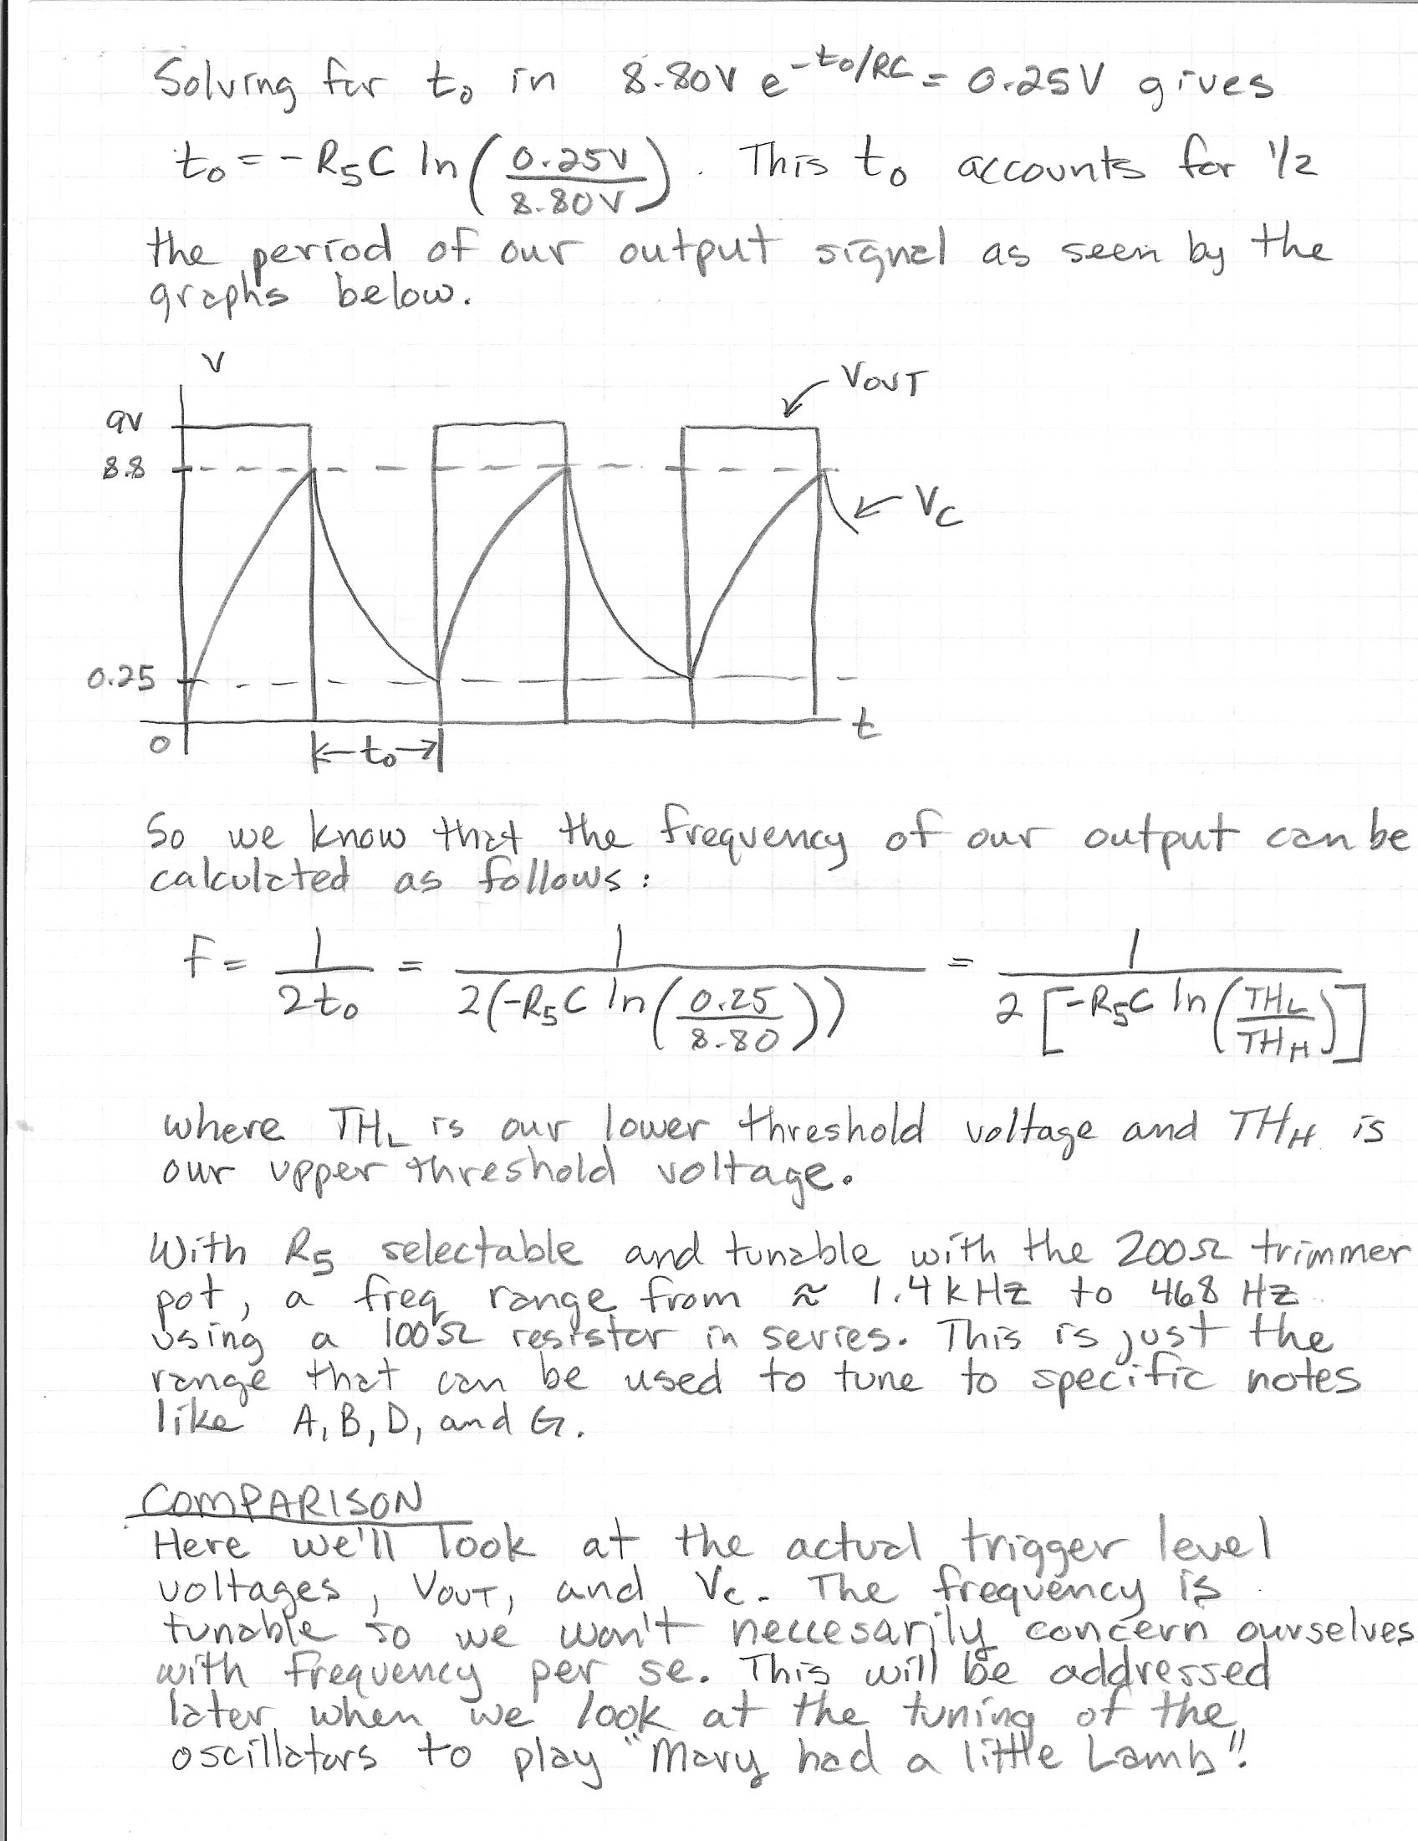 Solving for t₀ in 8.80V e^(-t₀/RC) = 0.25V gives
t₀ = -R₅C ln(0.25V/8.80V). This t₀ accounts for 1/2
the period of our output signal as seen by the
graphs below.
V
9V
VOUT
8.8
VC
0.25
t
0
t₀
So we know that the frequency of our output can be
calculated as follows:
F = 1/(2t₀) = 1/(2(-R₅C ln(0.25/8.80))) = 1/(2[-R₅C ln(TH_L/TH_H)])
where TH_L is our lower threshold voltage and TH_H is
our upper threshold voltage.
With R₅ selectable and tunable with the 200Ω trimmer
pot, a freq range from ≈ 1.4kHz to 468 Hz
using a 100Ω resistor in series. This is just the
range that can be used to tune to specific notes
like A, B, D, and G.
COMPARISON
Here we'll look at the actual trigger level
voltages, VOUT, and Vc. The frequency is
tunable so we won't neccesarily concern ourselves
with frequency per se. This will be addressed
later when we look at the tuning of the
oscillators to play "Mary had a little Lamb".